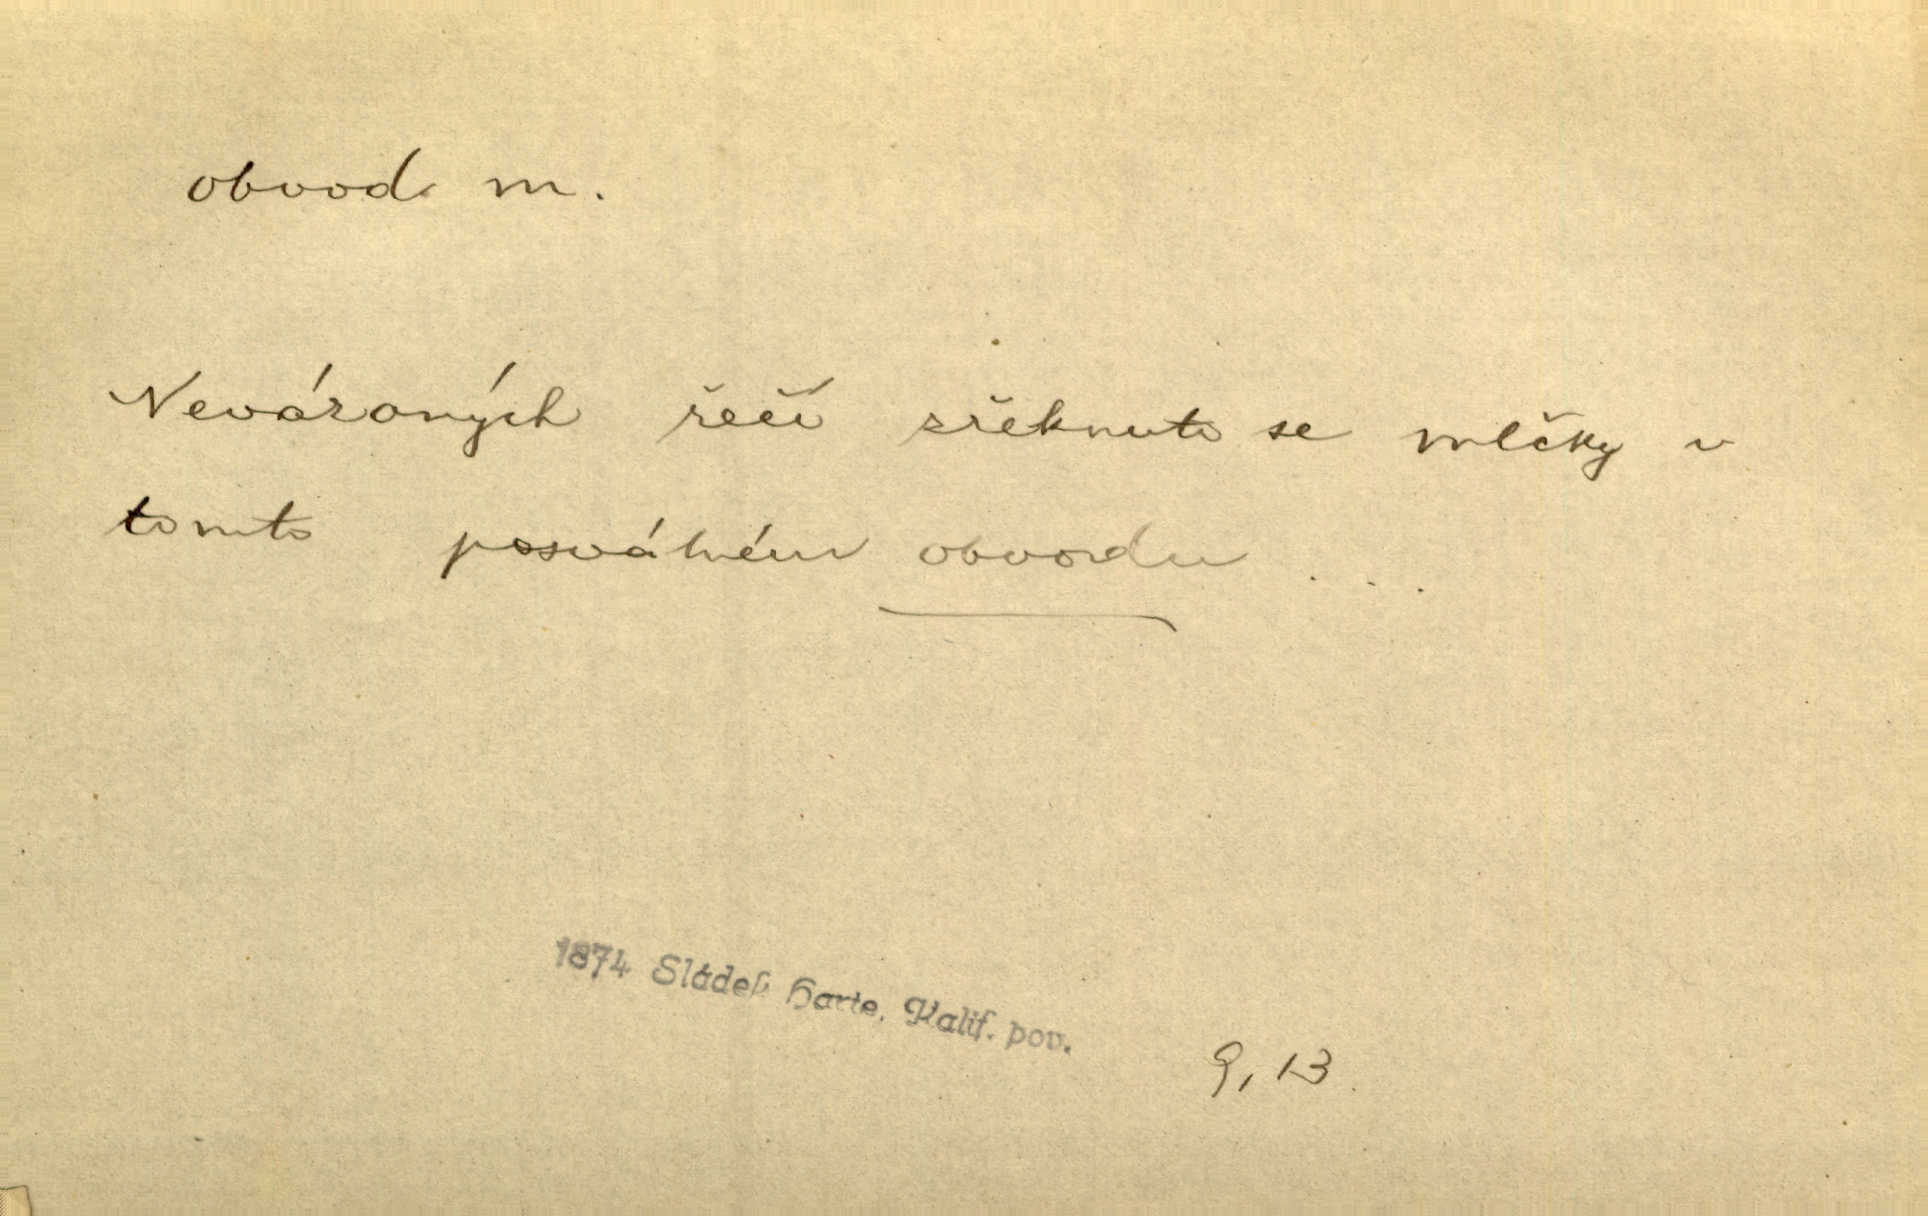 obvod m.
Neváraných řečí zřeknuto se mlčky v
tomto posvátném obvodu ...
1874 Sládek Harte, Kalif. pov.
9, 13